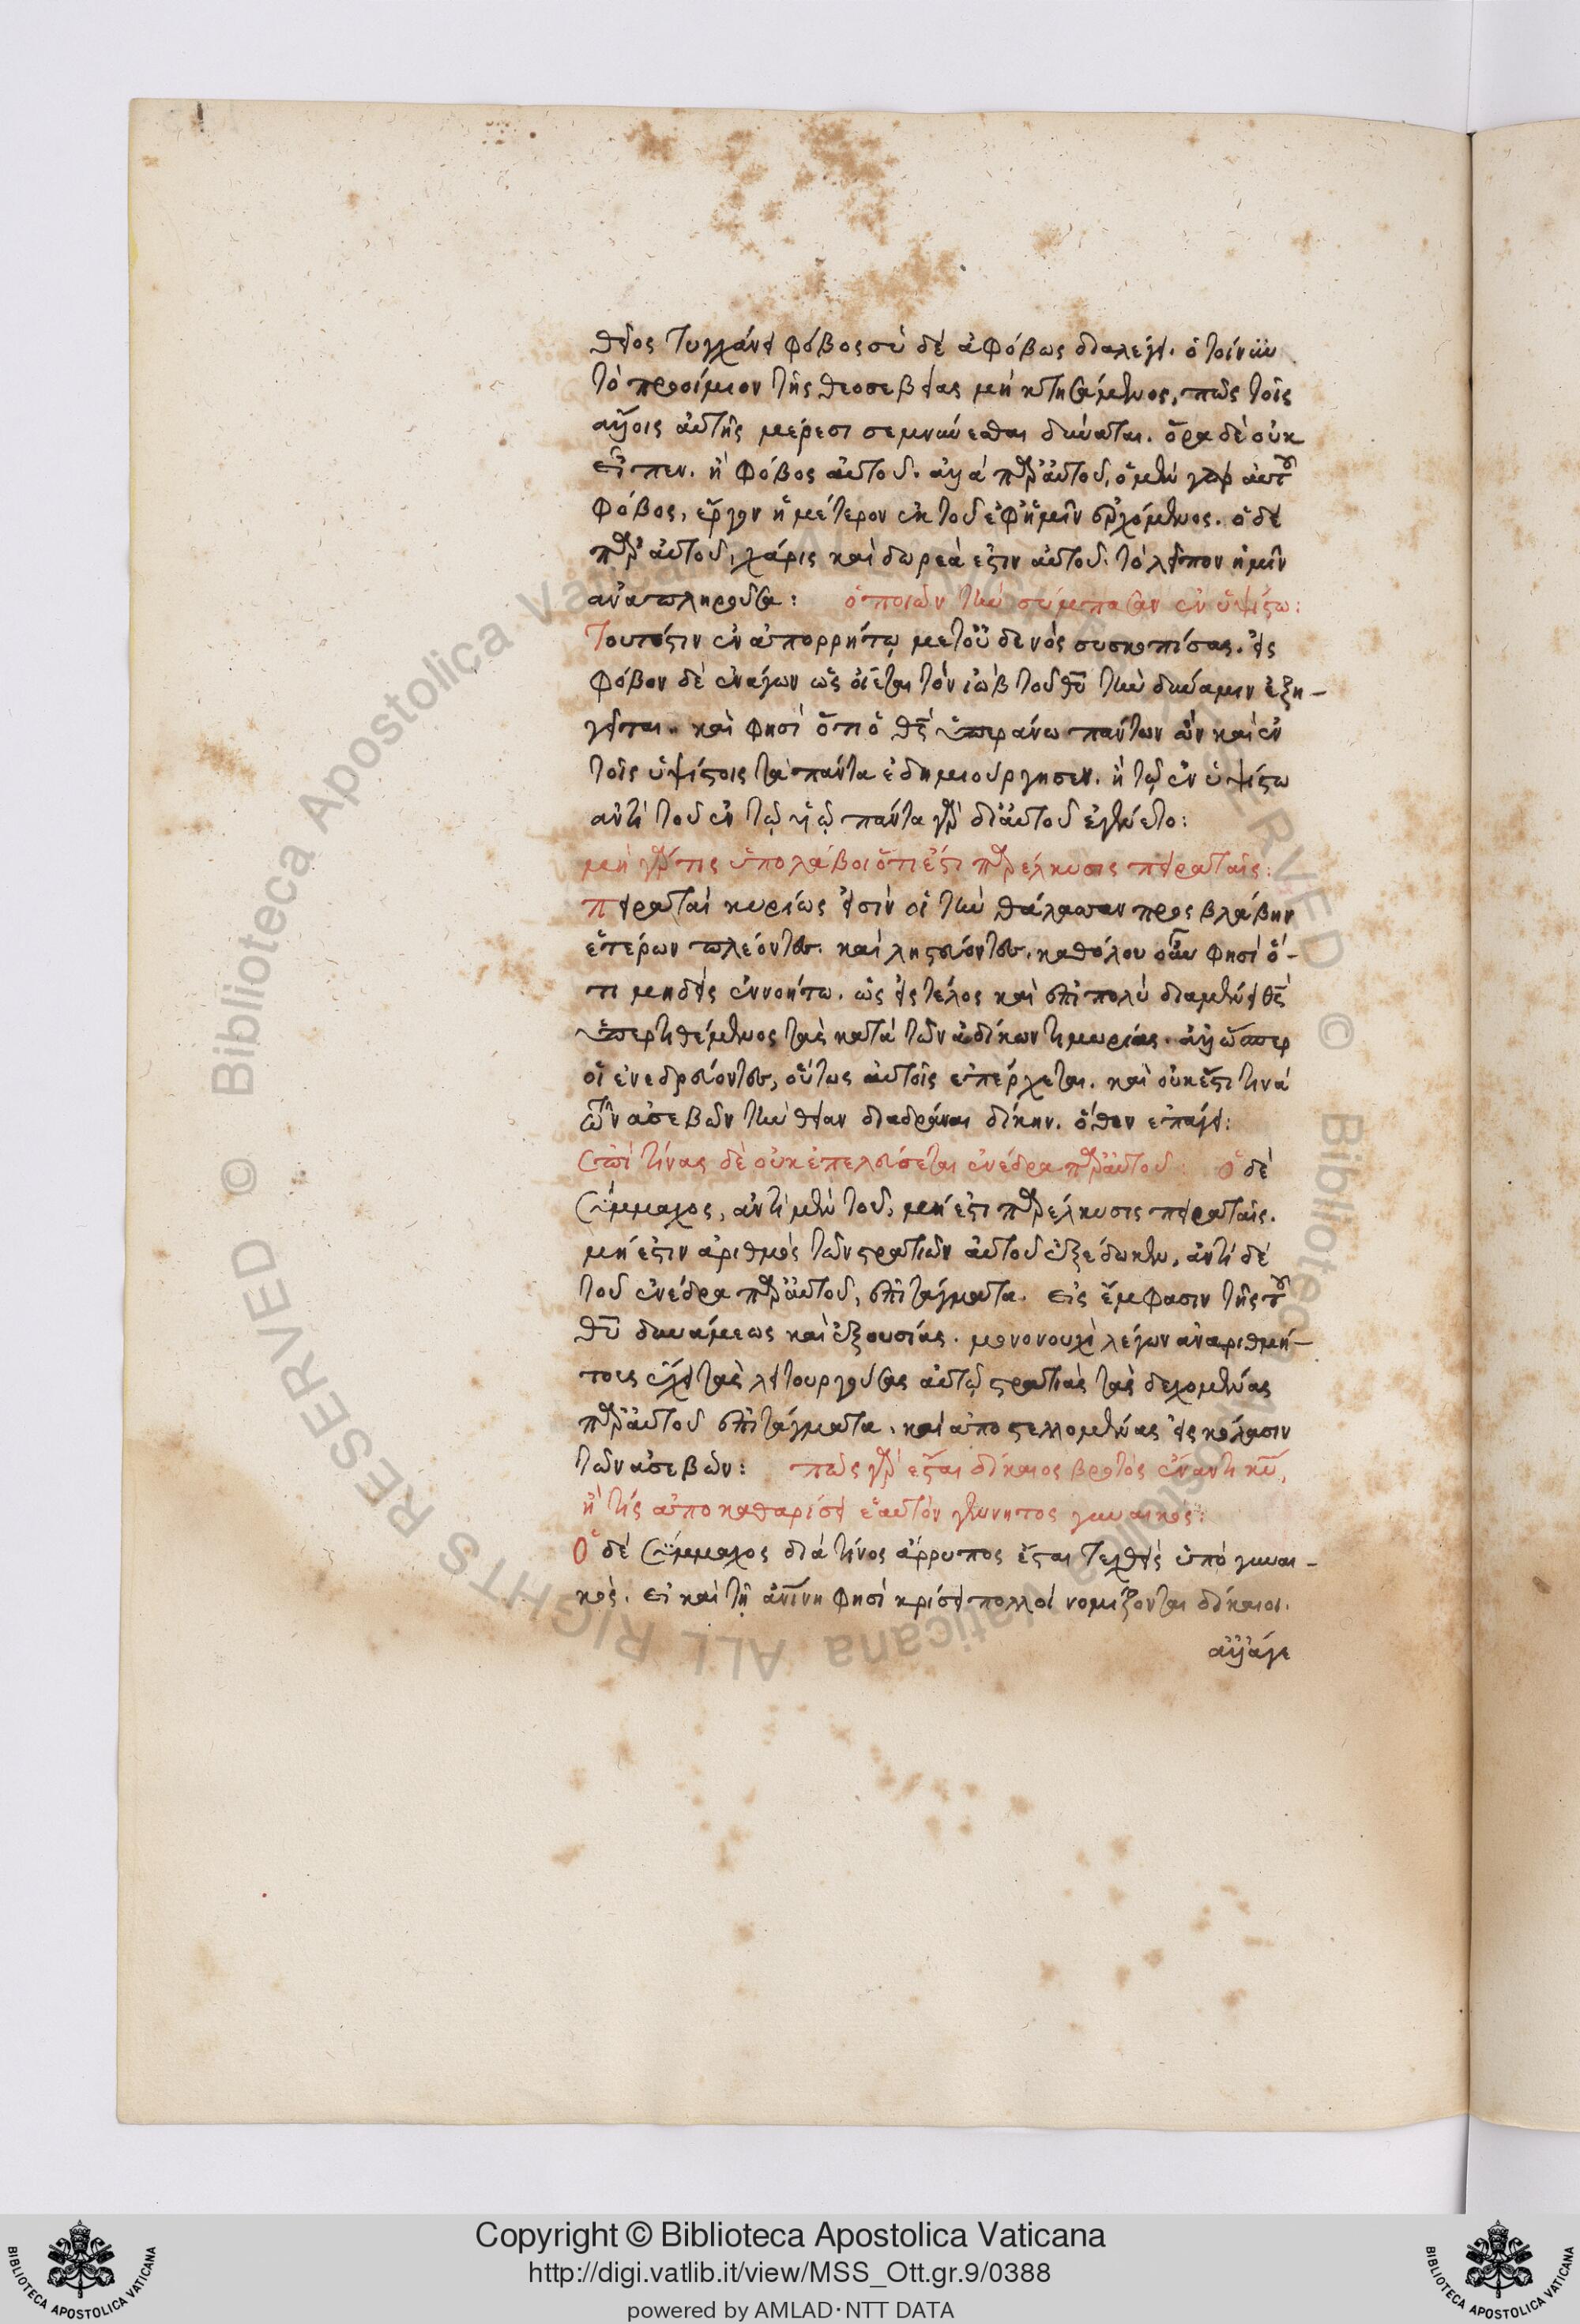 θεῖος τυγχάνει φόβος σὺ δὲ ἀφόβως διαλέγει. ὁ τοίνυν
τὸ προοίμιον τῆς θεοσεβείας μὴ κτησάμενος, πῶς τοῖς
ἄλλοις αὐτῆς μέρεσι σεμνύνεσθαι δύναται. ὅρα δὲ οὐκ
εἶπεν. ἢ φόβος αὐτοῦ. ἀλλὰ παρ' αὐτοῦ, ὁ μὲν γὰρ αὐτοῦ
φόβος, ἔργον ἡμέτερον ἐκ τοῦ ἐφ' ἡμῖν ἐρχόμενος. ὁ δὲ
παρ' αὐτοῦ, χάρις καὶ δωρεά ἐστιν αὐτοῦ. τὸ λεῖπον ἡμῖν
ἀναπληροῦσα: ὁ ποιῶν τὴν σύμπασαν ἐν ὑψίστω:
Τουτέστιν ἐν ἀπορρήτῳ μετ' οὐδενὸς συσκοπίσας. εἰς
φόβον δὲ ἐνάγων ὡς οἴεται τὸν ἰὼβ τοῦ θυ τὴν δύναμιν ἐξη-
γεῖται. καὶ φησὶ ὅτι ὁ θς ὑπεράνω πάντων ὢν καὶ ἐν
τοῖς ὑψίστοις τὰ πάντα ἐδημιούργησεν. ἢ τῷ ἐν ὑψίστω
ἀντὶ τοῦ ἐν τῷ υἱῷ πάντα γὰρ δι' αὐτοῦ ἐγένετο:
μὴ γάρ τις ὑπολάβοι ὅτι ἐστὶ παρέλκυσις πειραταῖς:
πειραταὶ κυρίως εἰσὶν οἱ τὴν θάλασσαν προς βλάβην
ἑτέρων πλέοντες. καὶ ληστεύοντες. καθόλου οὖν φησὶ ὅ-
τι μηδεὶς ἐννοήτω. ὡς εἰς τέλος καὶ ἐπὶ πολὺ διαμένει θς
ὑπερτιθέμενος τὰς κατὰ τῶν ἀδίκων τιμωρίας. ἀλλ' ὥσπερ
οἱ ἐνεδρεύοντες, οὕτως αὐτοῖς ἐπέρχεται. καὶ οὐκ ἔστι τινὰ
τῶν ἀσεβῶν τὴν θείαν διαδρᾶναι δίκην. ὅθεν ἐπάγει:
ἐπὶ τίνας δὲ οὐκ ἐπελεύσεται ἐνέδρα παρ' αὐτοῦ: ὁ δὲ
Σύμμαχος, ἀντὶ μὲν τοῦ, μή ἐστι παρέλκυσις πειραταῖς.
μή ἐστιν ἀριθμὸς τῶν στρατιῶν αὐτοῦ ἐξέδωκεν, ἀντὶ δὲ
τοῦ ἐνέδρα παρ' αὐτοῦ, ἐπιτάγματα. εἰς ἔμφασιν τῆς τοῦ
θυ δυνάμεως καὶ ἐξουσίας. μονονουχὶ λέγων ἀναριθμή-
τους ἔχει τὰς λειτουργούσας αὐτῷ στρατιὰς τὰς δεχομένας
παρ' αὐτοῦ ἐπιτάγματα. καὶ ἀποστελλομένας εἰς κόλασιν
τῶν ἀσεβῶν: πῶς γὰρ ἔσται δίκαιος βροτὸς ἔναντι κυ,
ἢ τίς ἀποκαθαρίσει ἑαυτὸν γεννητος γυναικος:
Ὁ δὲ Σύμμαχος διὰ τίνος ἄρρυπος ἔσται τεχθεὶς ὑπὸ γυναι-
κὸς. εἰ καὶ τῇ ἀνίνη φησὶ κρίσει πολλοὶ νομίζονται δίκαιοι.
ἀλλ' ἄγε